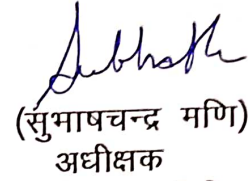 Subhash
(सुंभाषचन्द्र मणि)
अधीक्षक